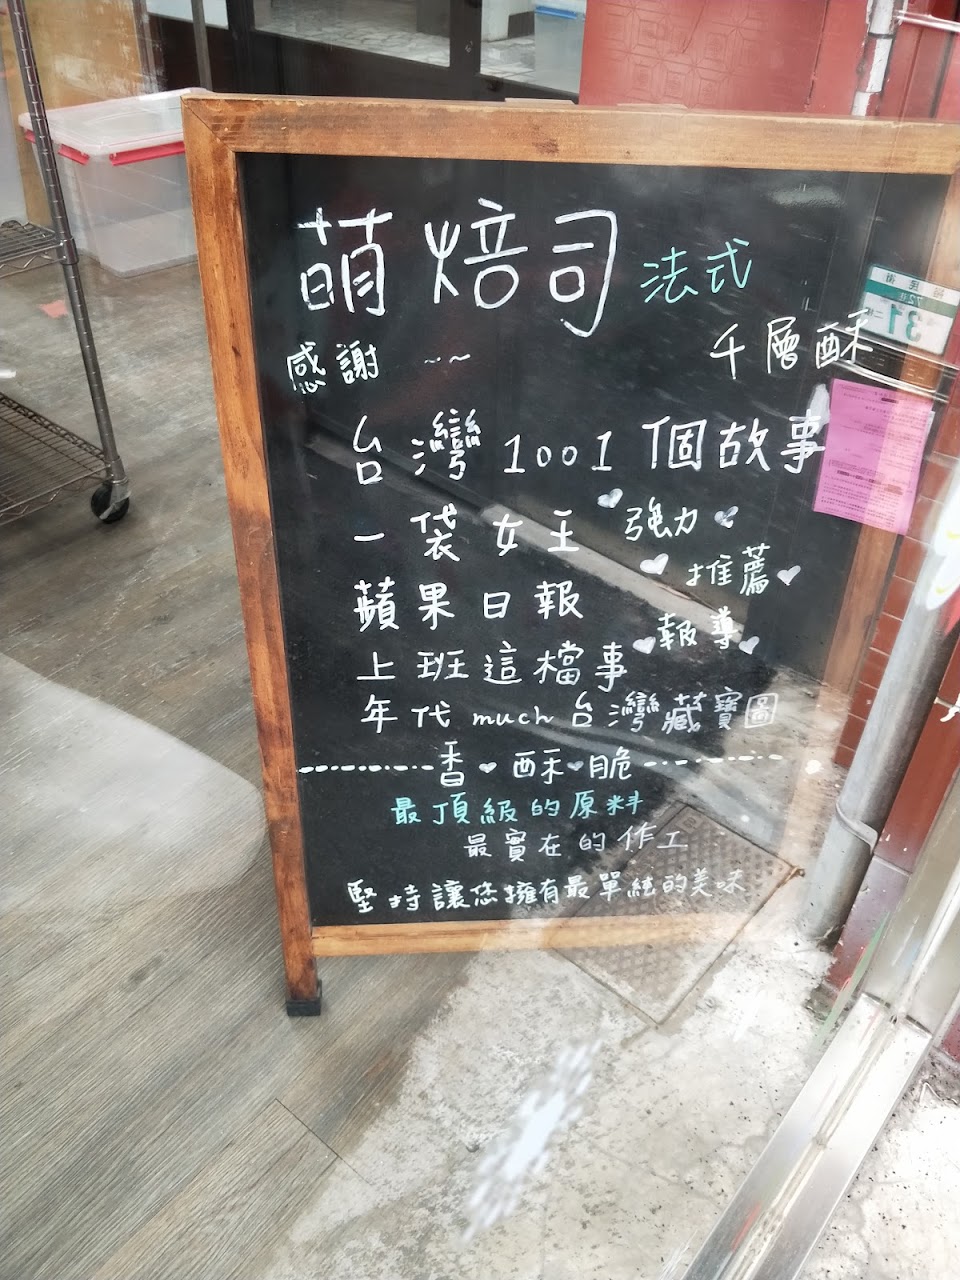 萌焙司 法式
千層酥
感謝 ~~
台灣1001個故事
一袋女王 強力
推薦
蘋果日報 報導
上班這檔事
年代much台灣藏寶圖
香 酥 脆
最頂級的原料
最實在的作工
堅持讓您擁有最單純的美味